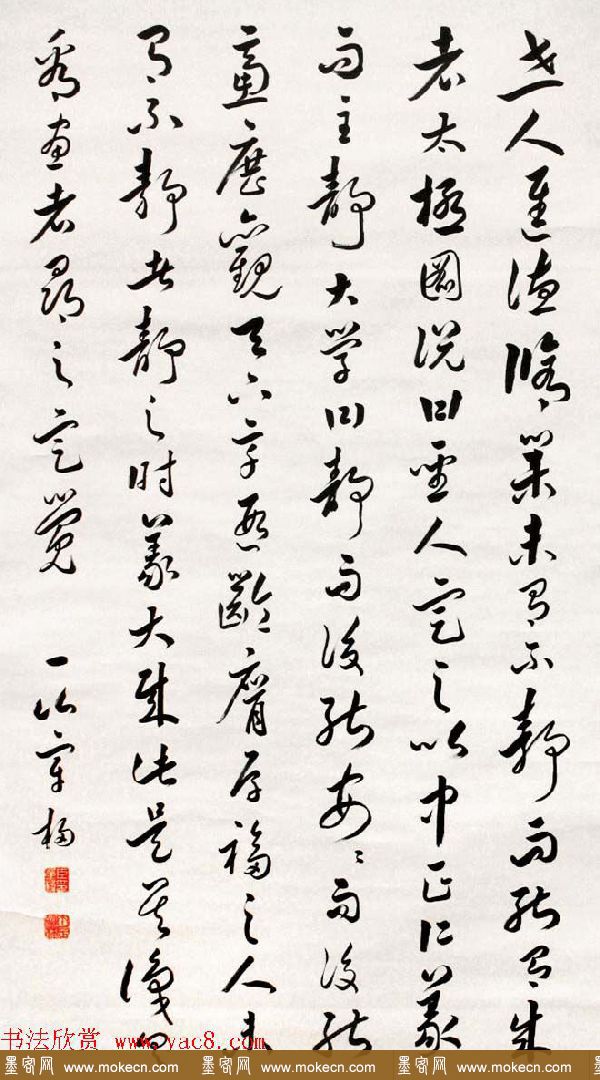 世人進德修業未有不靜而能有成
者太極圖說曰聖人定之以中正仁義
而主靜大學曰靜而後能安々而後能
慮々歷觀天下享遐齡膺厚福之人未
有不靜者靜之时義大哉
畫者尋之定覽
一山章梫
书法欣赏 www.yac8.com
墨客网 www.mokecn.com 墨客网 www.mokecn.com 墨客网 www.mokecn.com